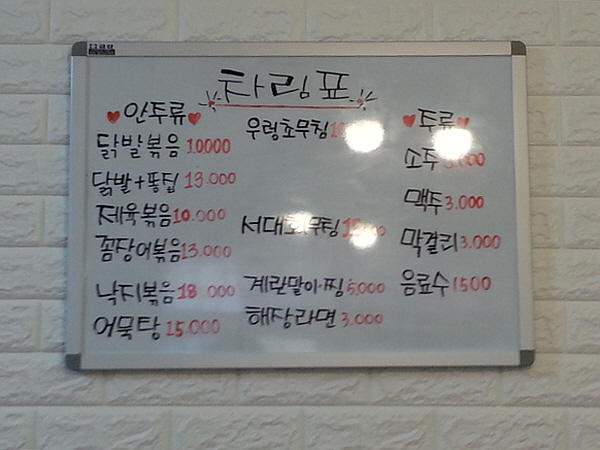 차림표
안주류
닭발볶음 10000
닭발+똥집 13.000
제육볶음 10.000
꼼장어볶음 13,000
낙지볶음 18.000
어묵탕 15.000
우렁초무침
서대회무침
계란말이·찜 5,000
해장라면 3,000
주류
소주
맥주 3.000
막걸리 3,000
음료수 1500